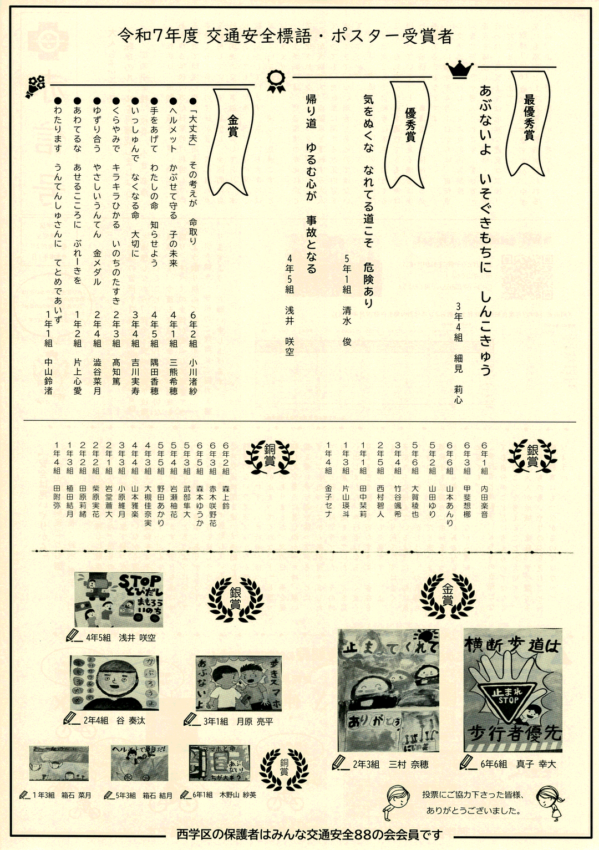 令和7年度 交通安全標語・ポスター受賞者
最優秀賞
あぶないよ いそぐきもちに しんこきゅう
3年4組 細見 莉心
優秀賞
気をぬくな なれてる道こそ 危険あり
5年1組 清水 俊
帰り道 ゆるむ心が 事故となる
4年5組 浅井 咲空
金賞
●「大丈夫」 その考えが 命取り 6年2組 小川渚紗
●ヘルメット かぶせて守る 子の未来 4年1組 三熊希穂
●手をあげて わたしの命 知らせよう 4年5組 隅田香穂
●いっしゅんで なくなる命 大切に 3年4組 吉川実寿
●くらやみで キラキラひかる いのちのたすき 2年3組 高知篤
●ゆずり合う やさしいうんてん 金メダル 2年4組 澁谷菜月
●あわてるな あせるこころに ぶれーきを 1年2組 片上心愛
●わたります うんてんしゅさんに てとめであいず 1年1組 中山鈴渚
銀賞
6年1組 内田楽音
6年3組 甲斐想梛
6年6組 山本あんり
5年2組 山田ゆり
5年6組 大賀稜也
3年4組 竹谷颯希
2年5組 西村碧人
1年1組 田中栞莉
1年3組 片山瑛斗
1年4組 金子セナ
銅賞
6年2組 森上鈴
6年3組 赤木咲野花
6年5組 森本ゆうか
5年3組 武部隼大
5年5組 野田あかり
5年4組 岩瀬柚花
4年3組 大槻佳奈実
4年4組 山本雅楽
3年3組 小原維月
2年1組 岩堂蒼大
2年2組 柴原実花
2年2組 田原莉緒
1年3組 植田結月
1年4組 田附弥
金賞
横断歩道は
止まれ
STOP
歩行者優先
6年6組 真子 幸大
止まってくれて
ありがとう
2年3組 三村 奈穂
銀賞
STOP
とびだし
まもろう
いのち
4年5組 浅井 咲空
2年4組 谷 奏汰
歩きスマホ
あぶないよ
3年1組 月原 亮平
銅賞
1年3組 箱石 菜月
5年3組 箱石 結月
6年1組 木野山 紗英
投票にご協力下さった皆様、
ありがとうございました。
西学区の保護者はみんな交通安全88の会会員です